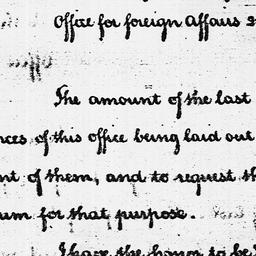 Office for foreign Affairs
The amount of the last
nces of this office being laid out
nt of them, and to request th
um for that purpose.
I have the honor to be